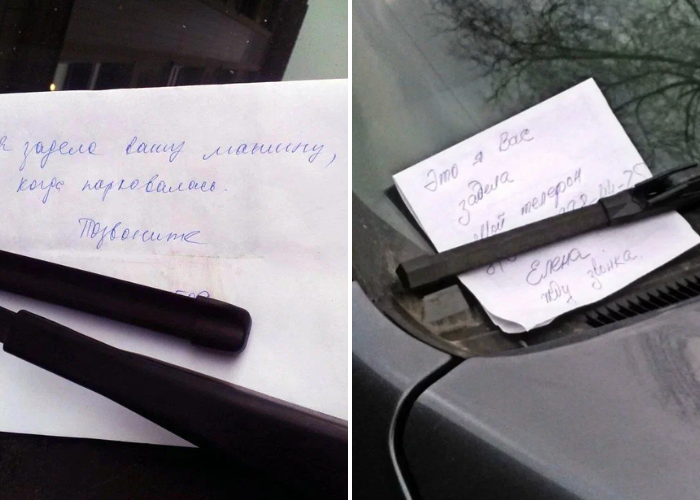 я задела вашу машину,
когда парковалась.
Позвоните
Это я Вас
задела
Мой телефон
Елена
жду звонка.